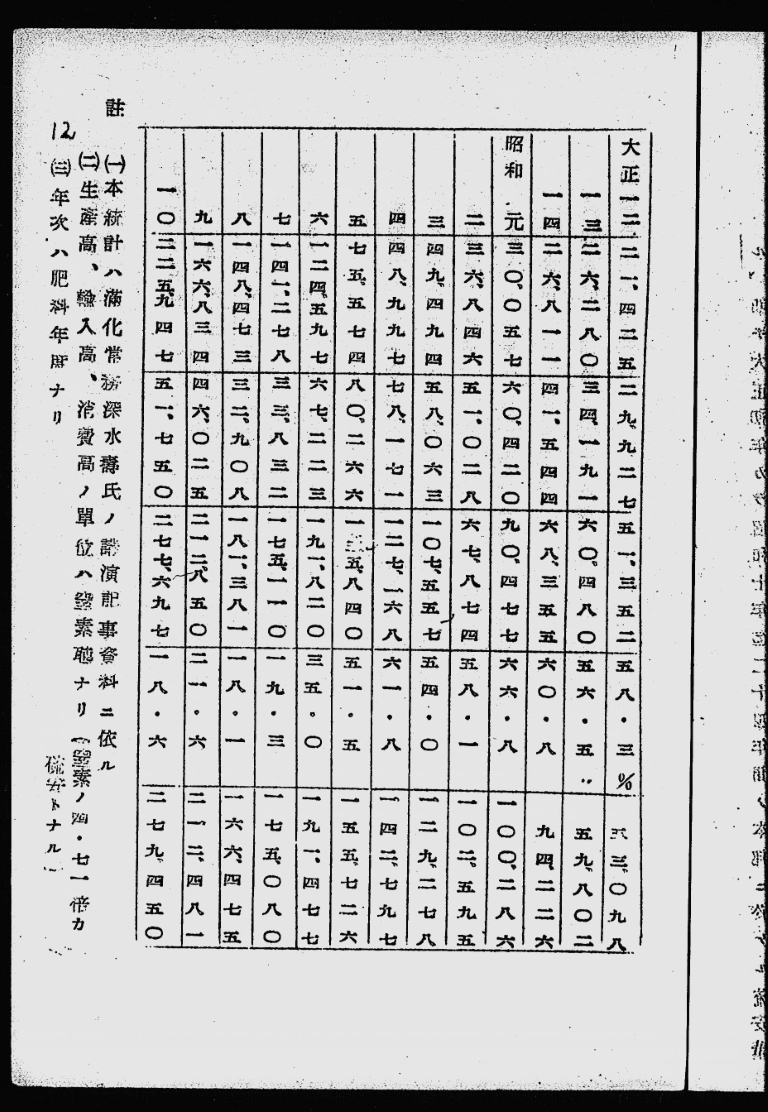 大正一二 二一、四二五 二九、九二七 五一、三五二 五八・三% 三、〇九八
一三 二六、二八〇 三四、一九一 六〇、四八〇 五六・五〃 五九、八〇二
一四 二六、八一一 四一、五四四 六八、三五五 六〇・八 九四、二二六
昭和元 三〇、〇五七 六〇、四二〇 九〇、四七七 六六・八 一〇〇、二八六
二 三六、八四六 五一、〇二八 六七、八七四 五八・一 一〇二、五九五
三 四九、四九四 五八、〇六三 一〇七、五五七 五四・〇 一二九、二七八
四 四八、九九七 七八、一七一 一二七、一六八 六一・八 一四二、七九七
五 七五、五七四 八〇、二六六 一三五、八四〇 五一・五 一五五、七二六
六 一二四、五九七 六七、二二三 一九一、八二〇 三五・〇 一九一、四七七
七 一四一、二七八 三三、八三二 一七五、一一〇 一九・三 一七五、〇八〇
八 一四八、四七三 三二、九〇八 一八一、三八一 一八・一 一六六、四七五
九 一六六、八三四 四六、〇二五 二一二、八五〇 二一・六 二一二、四八一
一〇 二二五、九四七 五一、七五〇 二七七、六九七 一八・六 二七九、四五〇
註 ㈠本統計ハ満化常務深水壽氏ノ講演記事資料ニ依ル
㈡生産高、輸入高、消費高ノ單位ハ窒素瓲ナリ(窒素ノ四・七一倍カ
硫安トナル)
㈢年次ハ肥料年度ナリ
12